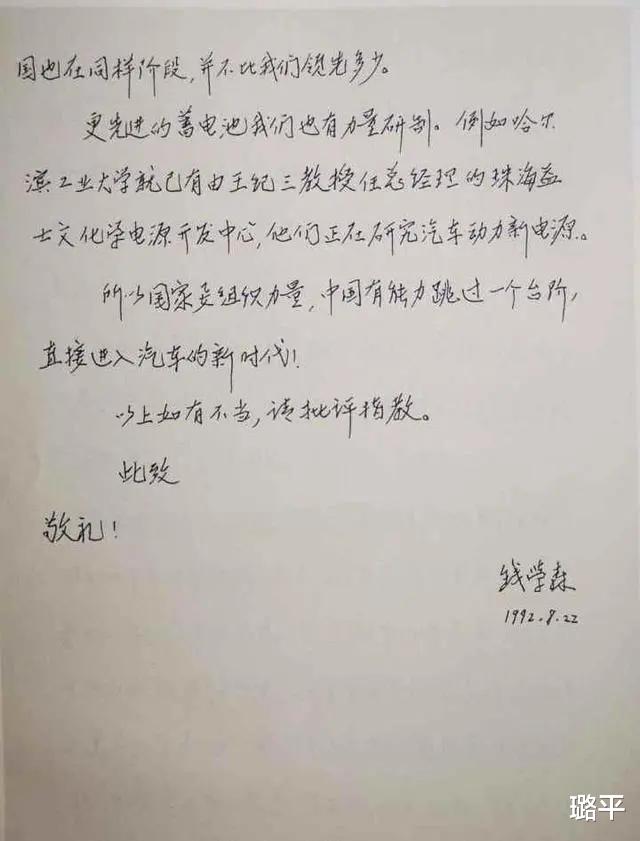 国也在同样阶段，并不比我们领先多少。
更先进的蓄电池我们也有力量研制。例如哈尔
滨工业大学就已有由王纪三教授任总经理的珠海益
士文化学电源开发中心，他们正在研究汽车动力新电源。
所以国家要组织力量，中国有能力跳过一个台阶，
直接进入汽车的新时代！
以上如有不当，请批评指教。
此致
敬礼！
钱学森
1992.8.22
璐平